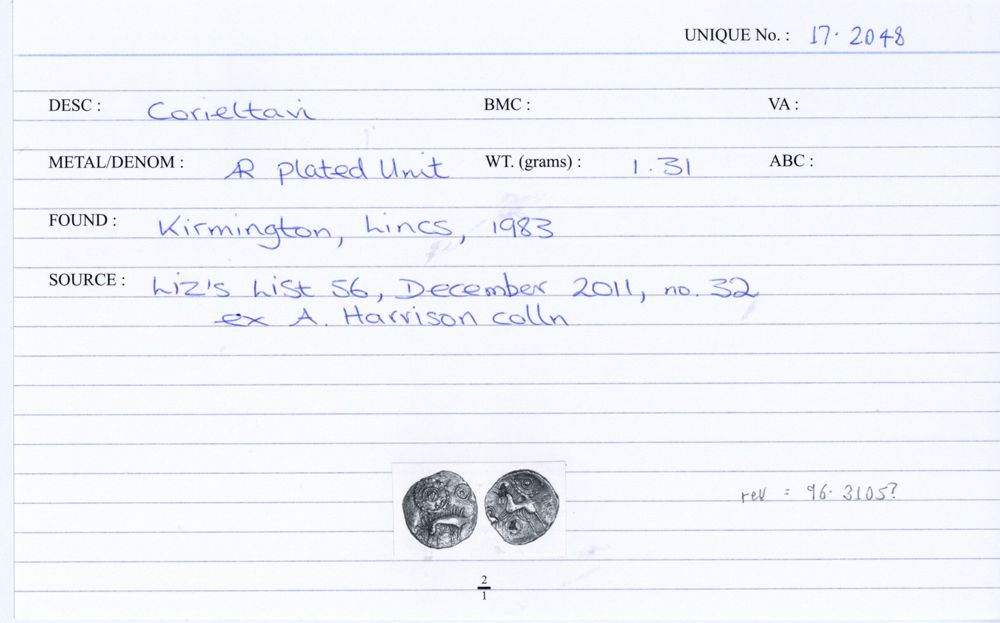 UNIQUE No. : 17. 2048
DESC : Corieltavi BMC : VA :
METAL/DENOM : AR plated Unit WT. (grams) : 1.31 ABC :
FOUND : Kirmington, Lincs, 1983
SOURCE : Liz's List 56, December 2011, no. 32
ex A. Harrison colln
rev = 96. 3105?
2
1